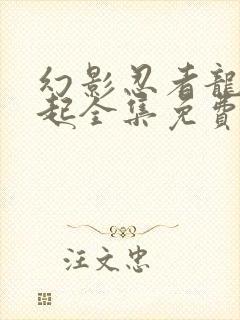 幻影忍者龍
起全集免費
汪文忠